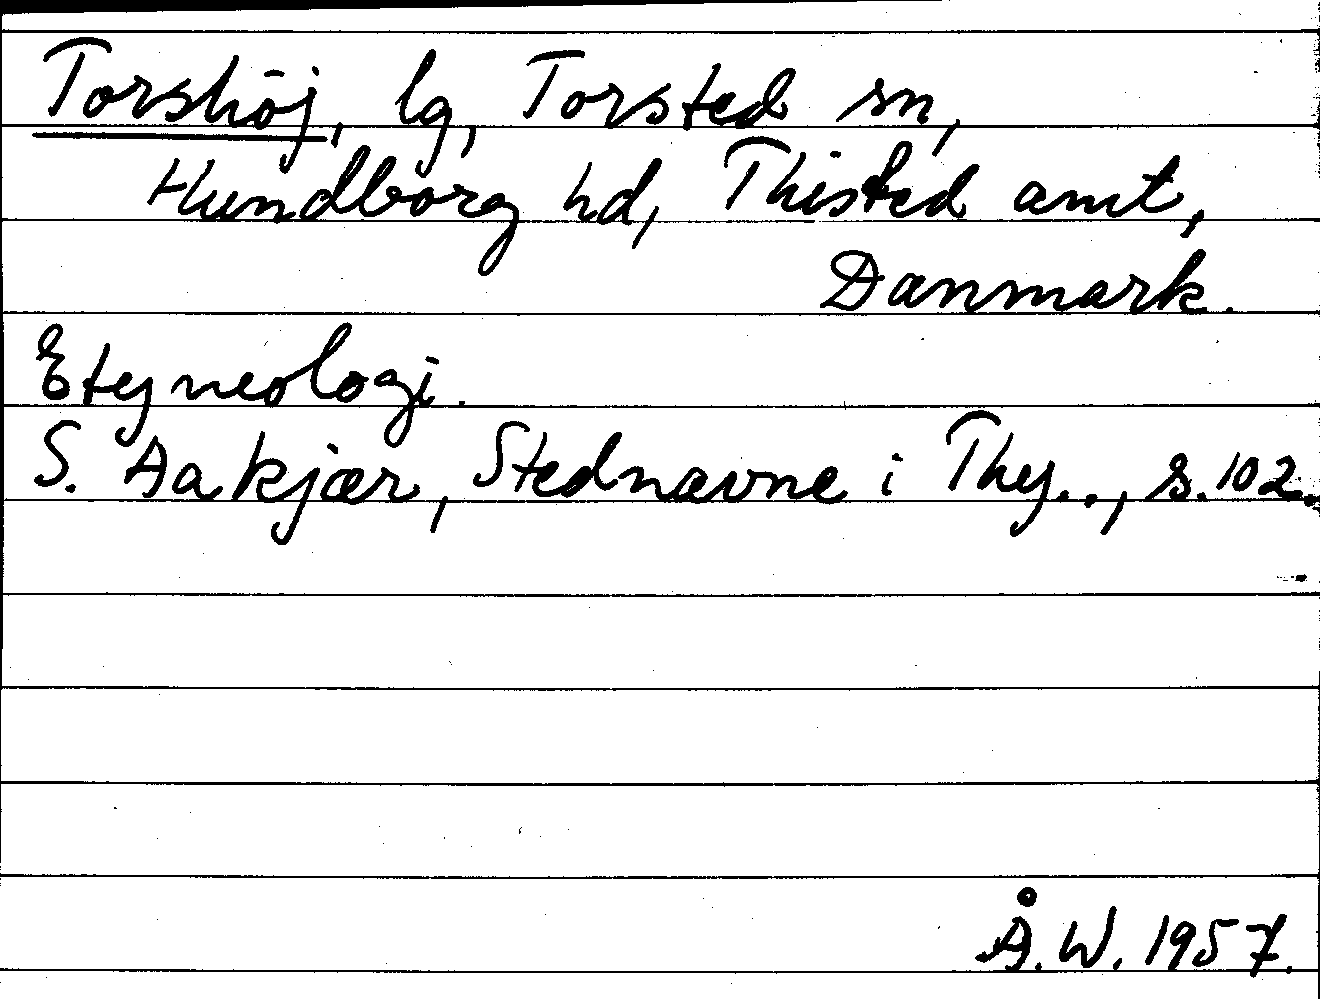 Torshöj, lg, Torsted sn,
Hundborg hd, Thisted amt,
Danmark.
Etymologi.
S. Aakjær, Stednavne i Thy.., s. 102.
Å. W. 1957.